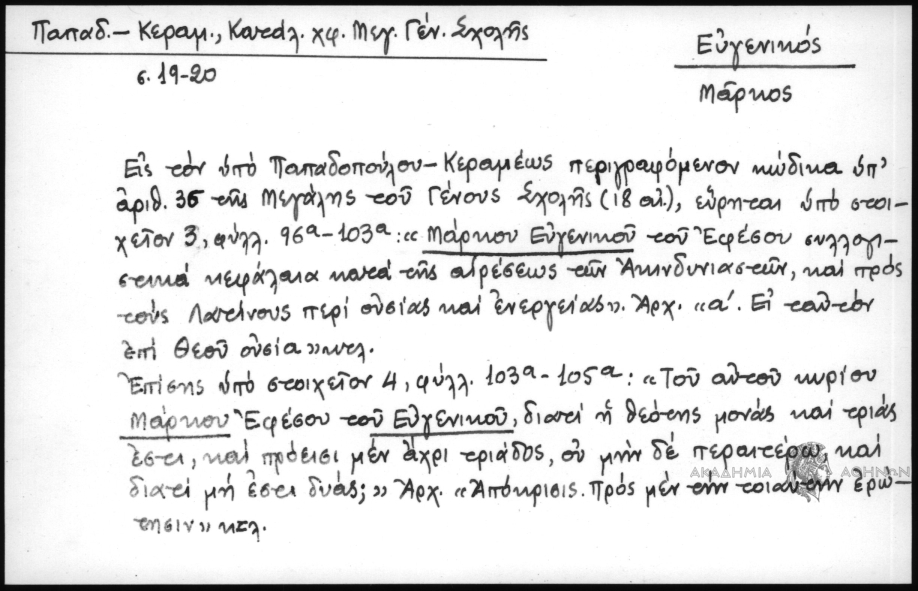 Παπαδ.– Κεραμ., Καταλ. χφ. Μεγ. Γέν. Σχολῆς
Εὐγενικός
σ. 19-20
Μᾶρκος
Εἰς τὸν ὑπὸ Παπαδοπούλου – Κεραμέως περιγραφόμενον κώδικα ὑπ'
ἀριθ. 36 τῆς Μεγάλης τοῦ Γένους Σχολῆς (18 αἰ.), εὕρηται ὑπὸ στοι-
χεῖον 3, φύλλ. 96α-103α: «Μάρκου Εὐγενικοῦ τοῦ Ἐφέσου συλλογι-
στικὰ κεφάλαια κατὰ τῆς αἱρέσεως τῶν Ἀκινδυνιαστῶν, καὶ πρὸς
τοὺς Λατίνους περὶ οὐσίας καὶ ἐνεργείας». Ἀρχ. «α΄. Εἰ ταὐτὸν
ἐπὶ Θεοῦ οὐσία» κτλ.
Ἐπίσης ὑπὸ στοιχεῖον 4, φύλλ. 103α - 105α: «Τοῦ αὐτοῦ κυρίου
Μάρκου Ἐφέσου τοῦ Εὐγενικοῦ, διατί ἡ θεότης μονὰς καὶ τριάς
ἐστι, καὶ πρόεισι μὲν ἄχρι τριάδος, οὐ μὴν δὲ περαιτέρω, καὶ
διατί μή ἐστι δυάς;» Ἀρχ. «Ἀπόκρισις. Πρὸς μὲν τὴν τοιαύτην ἐρώ-
τησιν» κτλ.
ΑΚΑΔΗΜΙΑ ΑΘΗΝΩΝ